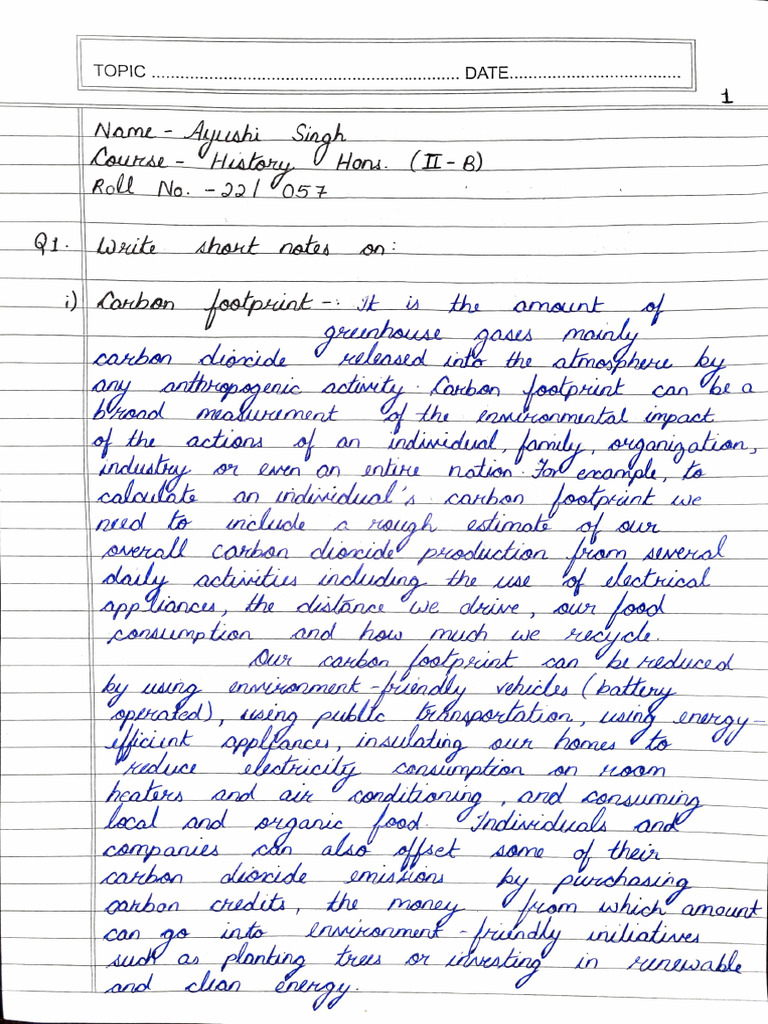 TOPIC ................................................................ DATE....................................
1
Name - Ayushi Singh
Course - History Hons. (II - B)
Roll No. - 22/057
Q1. Write short notes on:
i) Carbon footprint -: It is the amount of
greenhouse gases mainly
carbon dioxide released into the atmosphere by
any anthropogenic activity. Carbon footprint can be a
broad measurement of the environmental impact
of the actions of an individual, family, organization,
industry or even an entire nation. For example, to
calculate an individual's carbon footprint we
need to include a rough estimate of our
overall carbon dioxide production from several
daily activities including the use of electrical
appliances, the distance we drive, our food
consumption and how much we recycle.
Our carbon footprint can be reduced
by using environment-friendly vehicles (battery
operated), using public transportation, using energy-
efficient appliances, insulating our homes to
reduce electricity consumption on room
heaters and air conditioning, and consuming
local and organic food. Individuals and
companies can also offset some of their
carbon dioxide emissions by purchasing
carbon credits, the money from which amount
can go into environment-friendly initiatives
such as planting trees or investing in renewable
and clean energy.